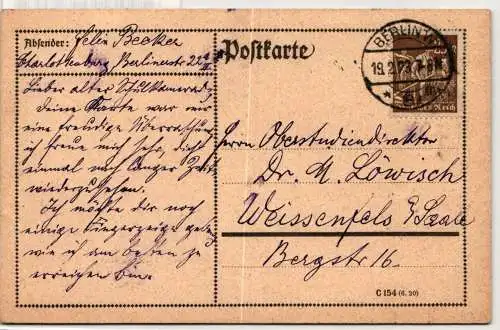 Absender: Felix Becker
Charlottenburg Berlinerstr. 22
Lieber alter Schulkamerad,
Deine Karte war mir
eine freudige Überraschung,
ich freue mich sehr, dich
einmal nach langer Zeit
wiederzusehen.
Ich möchte dir noch
einige Fingerzeige geben,
wie ich am besten zu
erreichen bin.
Postkarte
BERLIN
19.2.23.
Deutsches Reich
Herrn Oberstudiendirektor
Dr. M. Löwisch
Weissenfels a/Saale
Bergstr 16.
C 154 (6. 20)